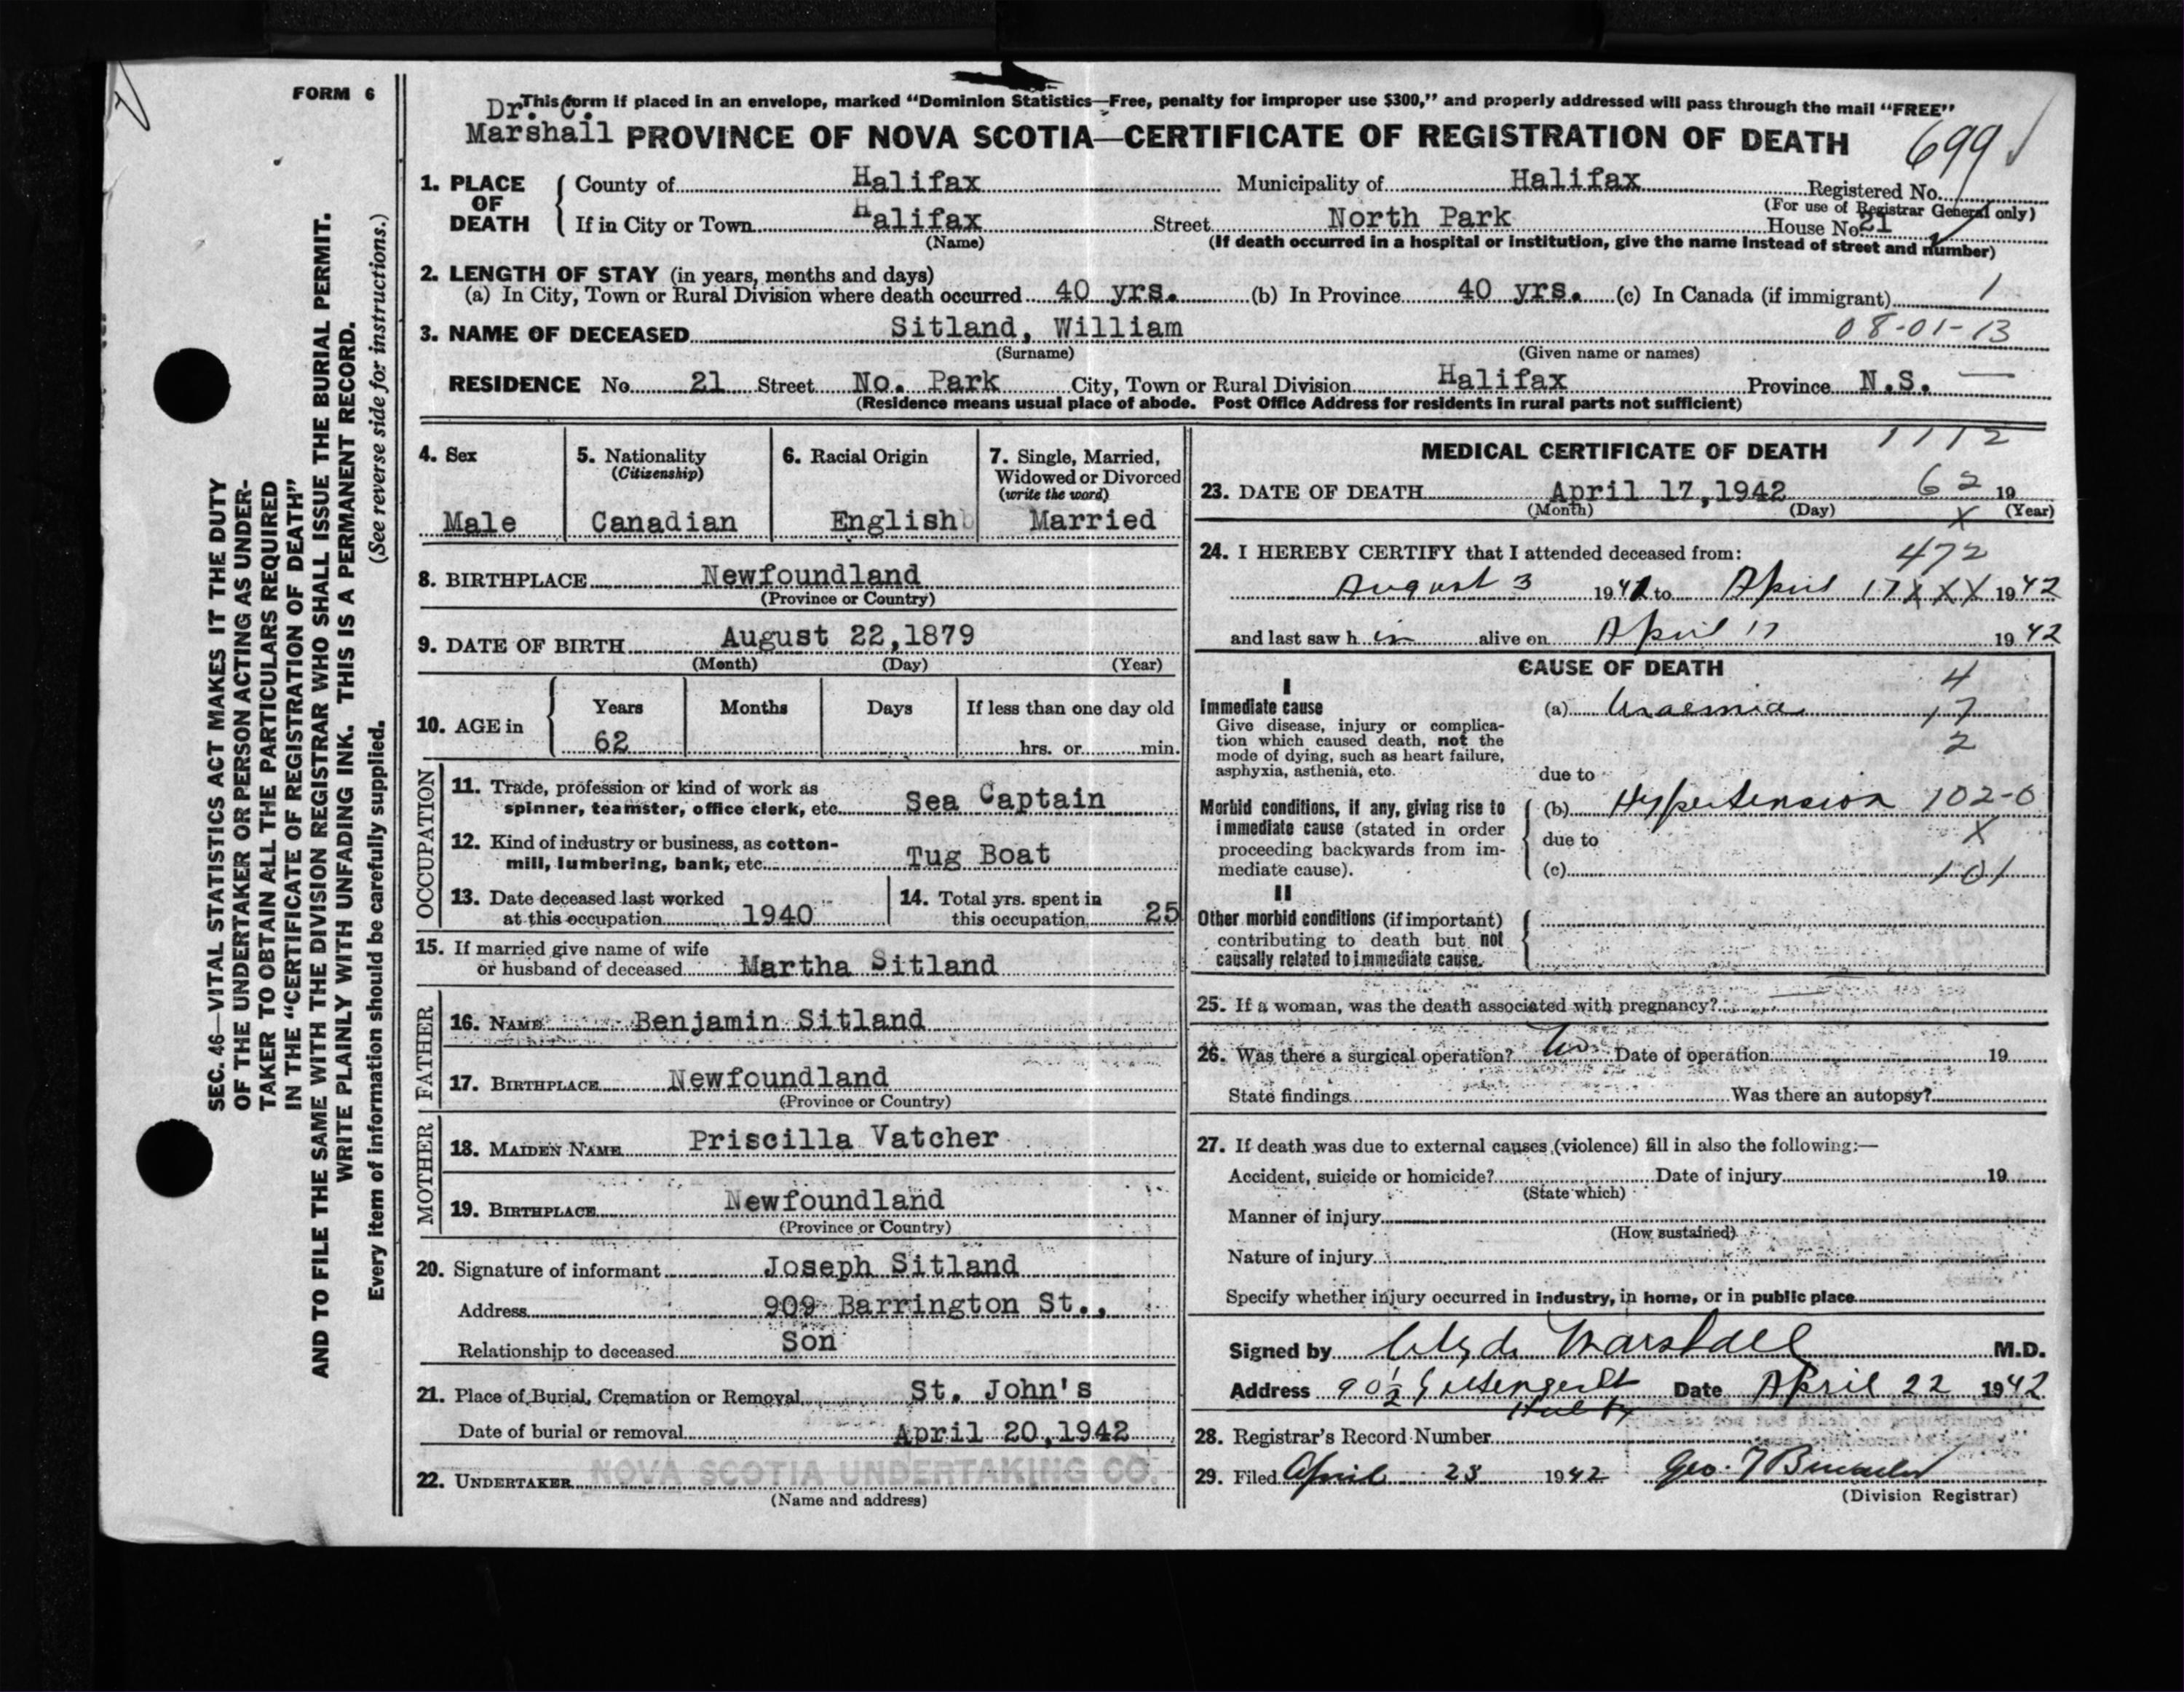 FORM 6
SEC. 46—VITAL STATISTICS ACT MAKES IT THE DUTY
OF THE UNDERTAKER OR PERSON ACTING AS UNDER-
TAKER TO OBTAIN ALL THE PARTICULARS REQUIRED
IN THE "CERTIFICATE OF REGISTRATION OF DEATH"
AND TO FILE THE SAME WITH THE DIVISION REGISTRAR WHO SHALL ISSUE THE BURIAL PERMIT.
WRITE PLAINLY WITH UNFADING INK. THIS IS A PERMANENT RECORD.
Every item of information should be carefully supplied. (See reverse side for instructions.)
This form if placed in an envelope, marked "Dominion Statistics—Free, penalty for improper use $300," and properly addressed will pass through the mail "FREE"
Dr. C.
Marshall PROVINCE OF NOVA SCOTIA—CERTIFICATE OF REGISTRATION OF DEATH 699
1. PLACE OF DEATH County of Halifax Municipality of Halifax Registered No.
(For use of Registrar General only)
If in City or Town Halifax Street North Park House No. 21
(Name) (If death occurred in a hospital or institution, give the name instead of street and number)
2. LENGTH OF STAY (in years, months and days)
(a) In City, Town or Rural Division where death occurred 40 yrs. (b) In Province 40 yrs. (c) In Canada (if immigrant) 1
3. NAME OF DECEASED Sitland, William 08-01-13
(Surname) (Given name or names)
RESIDENCE No. 21 Street No. Park City, Town or Rural Division Halifax Province N.S. —
(Residence means usual place of abode. Post Office Address for residents in rural parts not sufficient)
4. Sex
Male
5. Nationality
(Citizenship)
Canadian
6. Racial Origin
English
7. Single, Married,
Widowed or Divorced
(write the word)
Married
8. BIRTHPLACE Newfoundland
(Province or Country)
9. DATE OF BIRTH August 22,1879
(Month) (Day) (Year)
10. AGE in Years Months Days If less than one day old
62 hrs. or min.
OCCUPATION
11. Trade, profession or kind of work as
spinner, teamster, office clerk, etc. Sea Captain
12. Kind of industry or business, as cotton-
mill, lumbering, bank, etc. Tug Boat
13. Date deceased last worked
at this occupation 1940
14. Total yrs. spent in
this occupation 25
15. If married give name of wife
or husband of deceased Martha Sitland
FATHER
16. NAME Benjamin Sitland
17. BIRTHPLACE Newfoundland
(Province or Country)
MOTHER
18. MAIDEN NAME Priscilla Vatcher
19. BIRTHPLACE Newfoundland
(Province or Country)
20. Signature of informant Joseph Sitland
Address 909 Barrington St.,
Relationship to deceased Son
21. Place of Burial, Cremation or Removal St. John's
Date of burial or removal April 20,1942
22. UNDERTAKER NOVA SCOTIA UNDERTAKING CO.
(Name and address)
MEDICAL CERTIFICATE OF DEATH 1112
23. DATE OF DEATH April 17,1942 62 19
(Month) (Day) X (Year)
24. I HEREBY CERTIFY that I attended deceased from: 472
August 3 1941 to April 17 X X X 1942
and last saw h im alive on April 17 1942
CAUSE OF DEATH 4
I
Immediate cause (a) Uraemia 17
Give disease, injury or complica-
tion which caused death, not the 2
mode of dying, such as heart failure,
asphyxia, asthenia, etc. due to
Morbid conditions, if any, giving rise to (b) Hypertension 102-0
immediate cause (stated in order
proceeding backwards from im- due to X
mediate cause). (c) 101
II
Other morbid conditions (if important)
contributing to death but not
causally related to immediate cause.
25. If a woman, was the death associated with pregnancy? —
26. Was there a surgical operation? No Date of operation 19
State findings Was there an autopsy?
27. If death was due to external causes (violence) fill in also the following:—
Accident, suicide or homicide? Date of injury 19
(State which)
Manner of injury
(How sustained)
Nature of injury
Specify whether injury occurred in industry, in home, or in public place
Signed by Clyde Marshall M.D.
Address 90½ Gottengen St Date April 22 1942
Halifx
28. Registrar's Record Number
29. Filed April 23 1942 Geo. T
(Division Registrar)